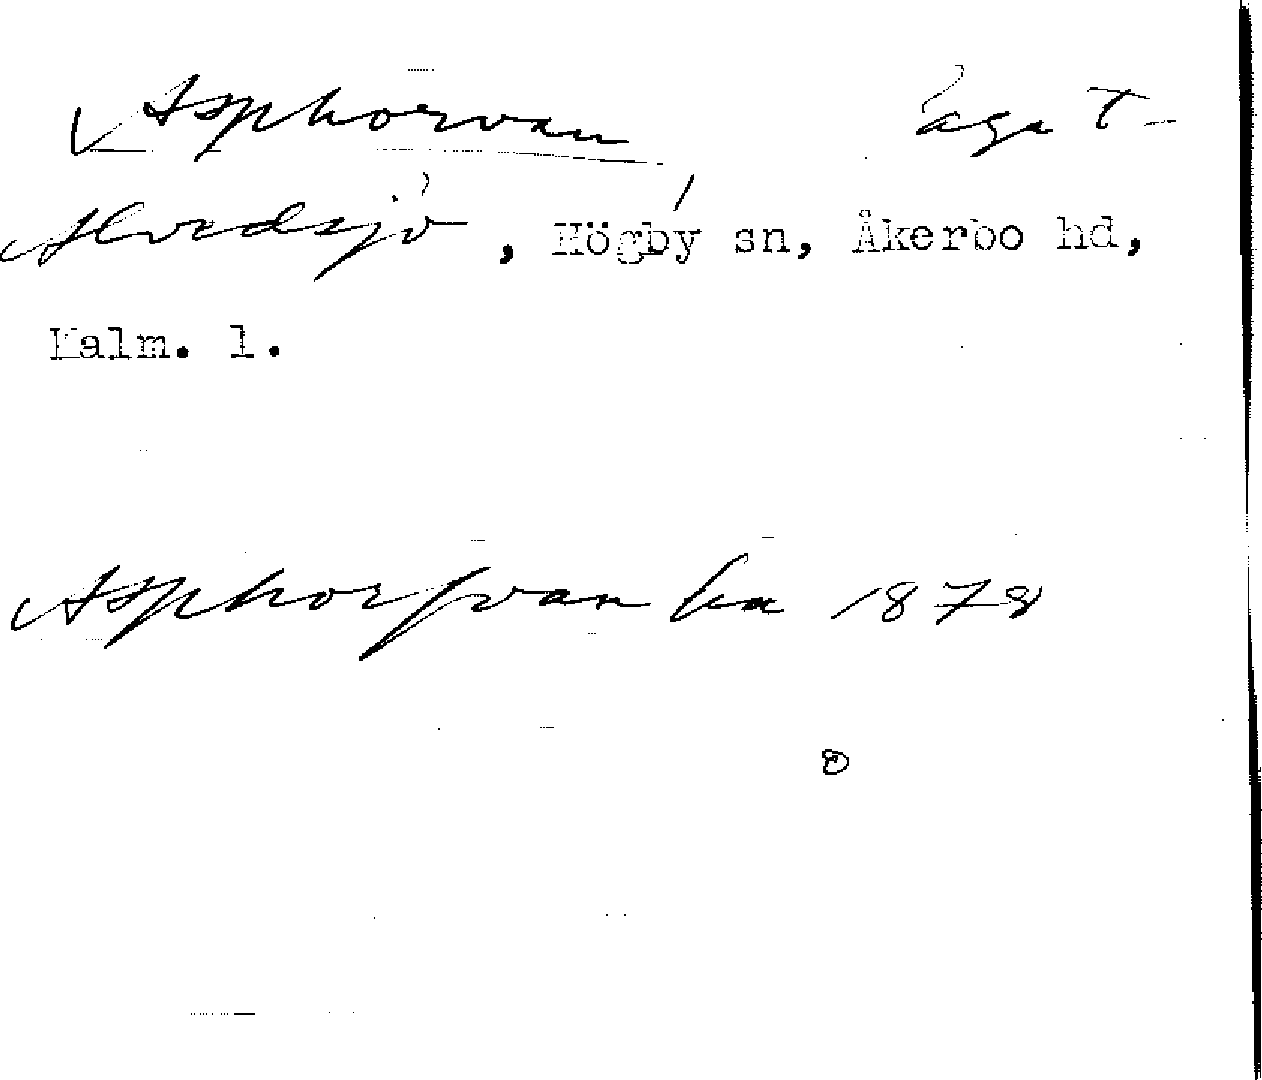 Asphorvan äga T-
Alvedsjö, Högby sn, Åkerbo hd,
Kalm. l.
Asphorfvan ha 1878